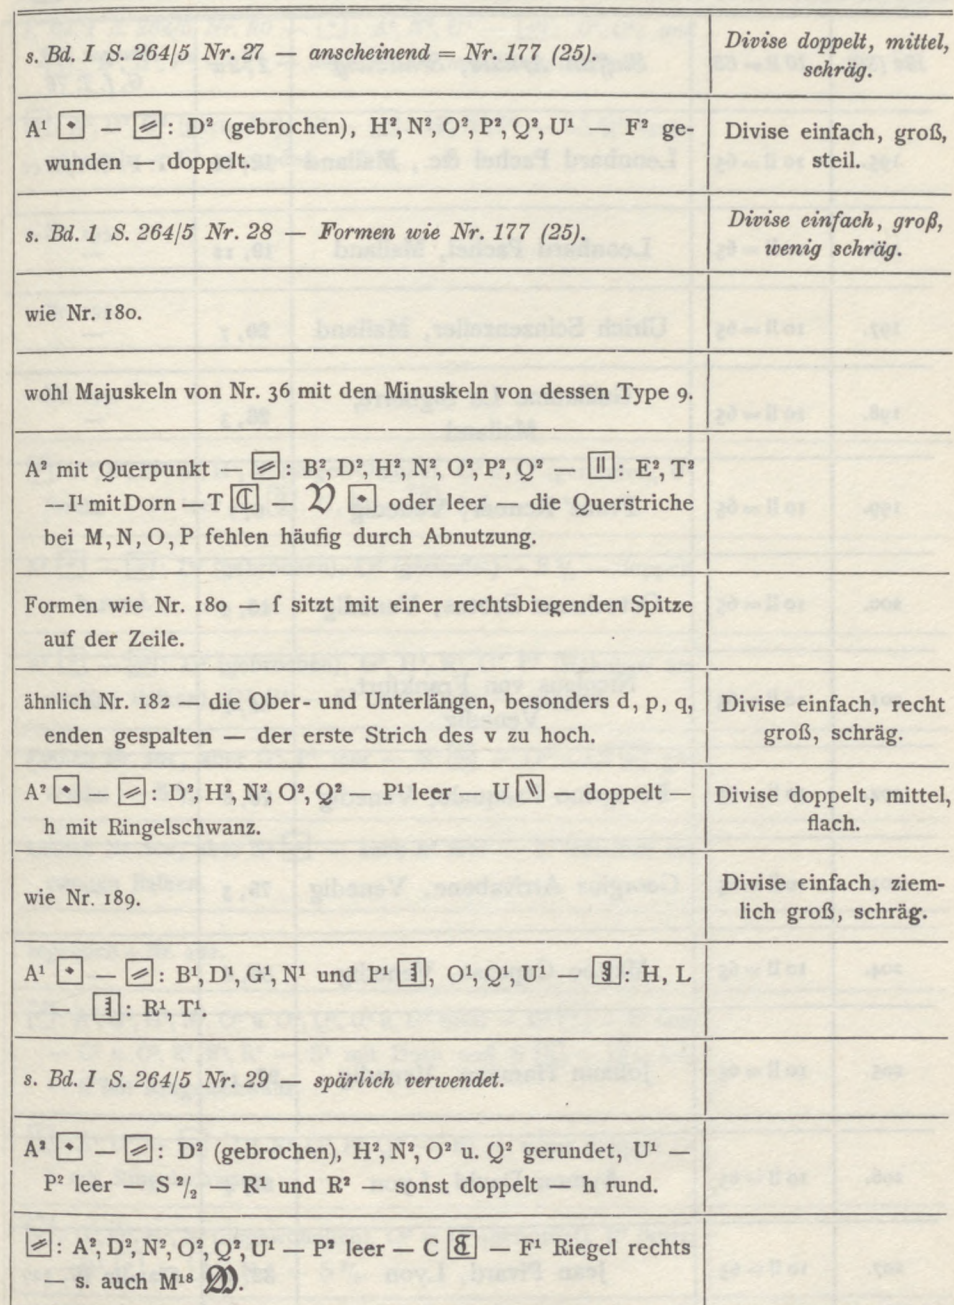 s. Bd. I S. 264/5 Nr. 27 — anscheinend = Nr. 177 (25).
Divise doppelt, mittel,
schräg.
A¹ — : D² (gebrochen), H², N², O², P², Q², U¹ — F² ge-
wunden — doppelt.
Divise einfach, groß,
steil.
s. Bd. 1 S. 264/5 Nr. 28 — Formen wie Nr. 177 (25).
Divise einfach, groß,
wenig schräg.
wie Nr. 180.
wohl Majuskeln von Nr. 36 mit den Minuskeln von dessen Type 9.
A² mit Querpunkt — : B², D², H², N², O², P², Q² — : E², T²
— I¹ mit Dorn — T — V oder leer — die Querstriche
bei M, N, O, P fehlen häufig durch Abnutzung.
Formen wie Nr. 180 — f sitzt mit einer rechtsbiegenden Spitze
auf der Zeile.
ähnlich Nr. 182 — die Ober- und Unterlängen, besonders d, p, q,
enden gespalten — der erste Strich des v zu hoch.
Divise einfach, recht
groß, schräg.
A² — : D², H², N², O², Q² — P¹ leer — U — doppelt —
h mit Ringelschwanz.
Divise doppelt, mittel,
flach.
wie Nr. 189.
Divise einfach, ziem-
lich groß, schräg.
A¹ — : B¹, D¹, G¹, N¹ und P¹ , O¹, Q¹, U¹ — : H, L
— : R¹, T¹.
s. Bd. I S. 264/5 Nr. 29 — spärlich verwendet.
A² — : D² (gebrochen), H², N², O² u. Q² gerundet, U¹ —
P² leer — S ²/₂ — R¹ und R² — sonst doppelt — h rund.
: A², D², N², O², Q², U¹ — P² leer — C — F¹ Riegel rechts
— s. auch M¹⁸ 𝔐.